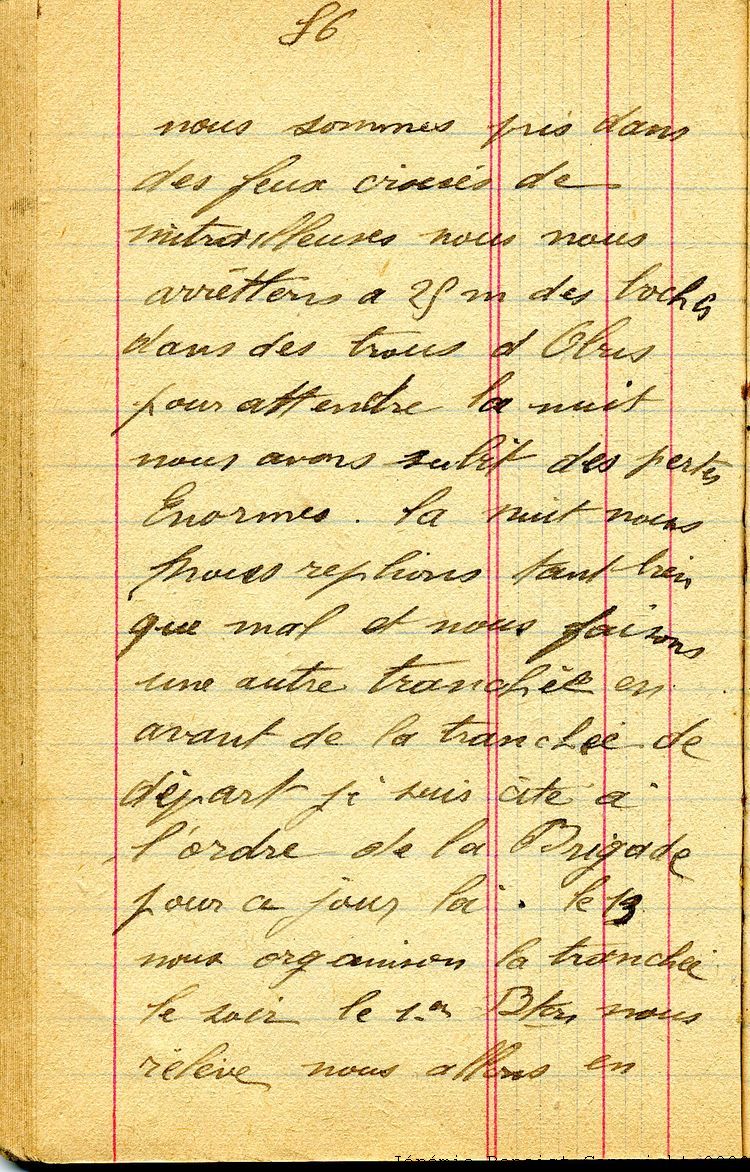 86
nous sommes pris dans
des feux croisés de
mitrailleuses nous nous
arrêttons a 25 m des boches
dans des trous d Obus
pour attendre la nuit
nous avons subit des pertes
Enormes. la nuit nous
nous replions tant bien
que mal et nous faisons
une autre tranchée en
avant de la tranchée de
départ je suis cité à
l'ordre de la Brigade
pour ce jour là. le 13
nous organison la tranchée
le soir le 1er Bton nous
rélève nous allons en